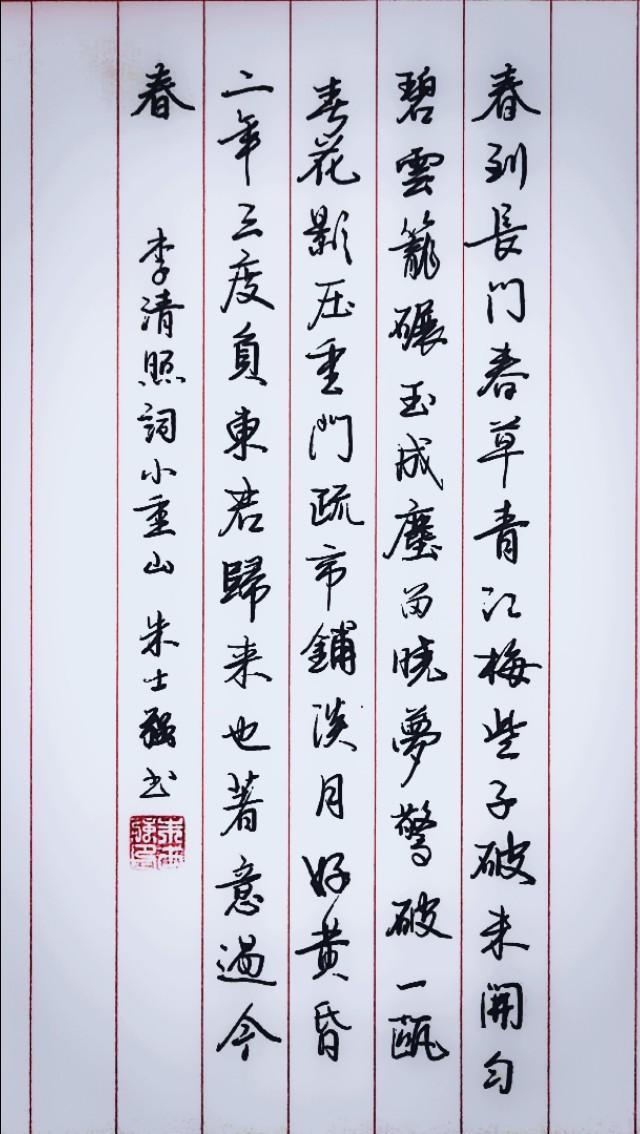 春到長門春草青江梅些子破未開勻
碧雲籠碾玉成塵留曉夢驚破一甌
春花影压重門疏帘鋪淡月好黄昏
二年三度負東君歸来也著意過今
春 李清照詞小重山 朱士强书